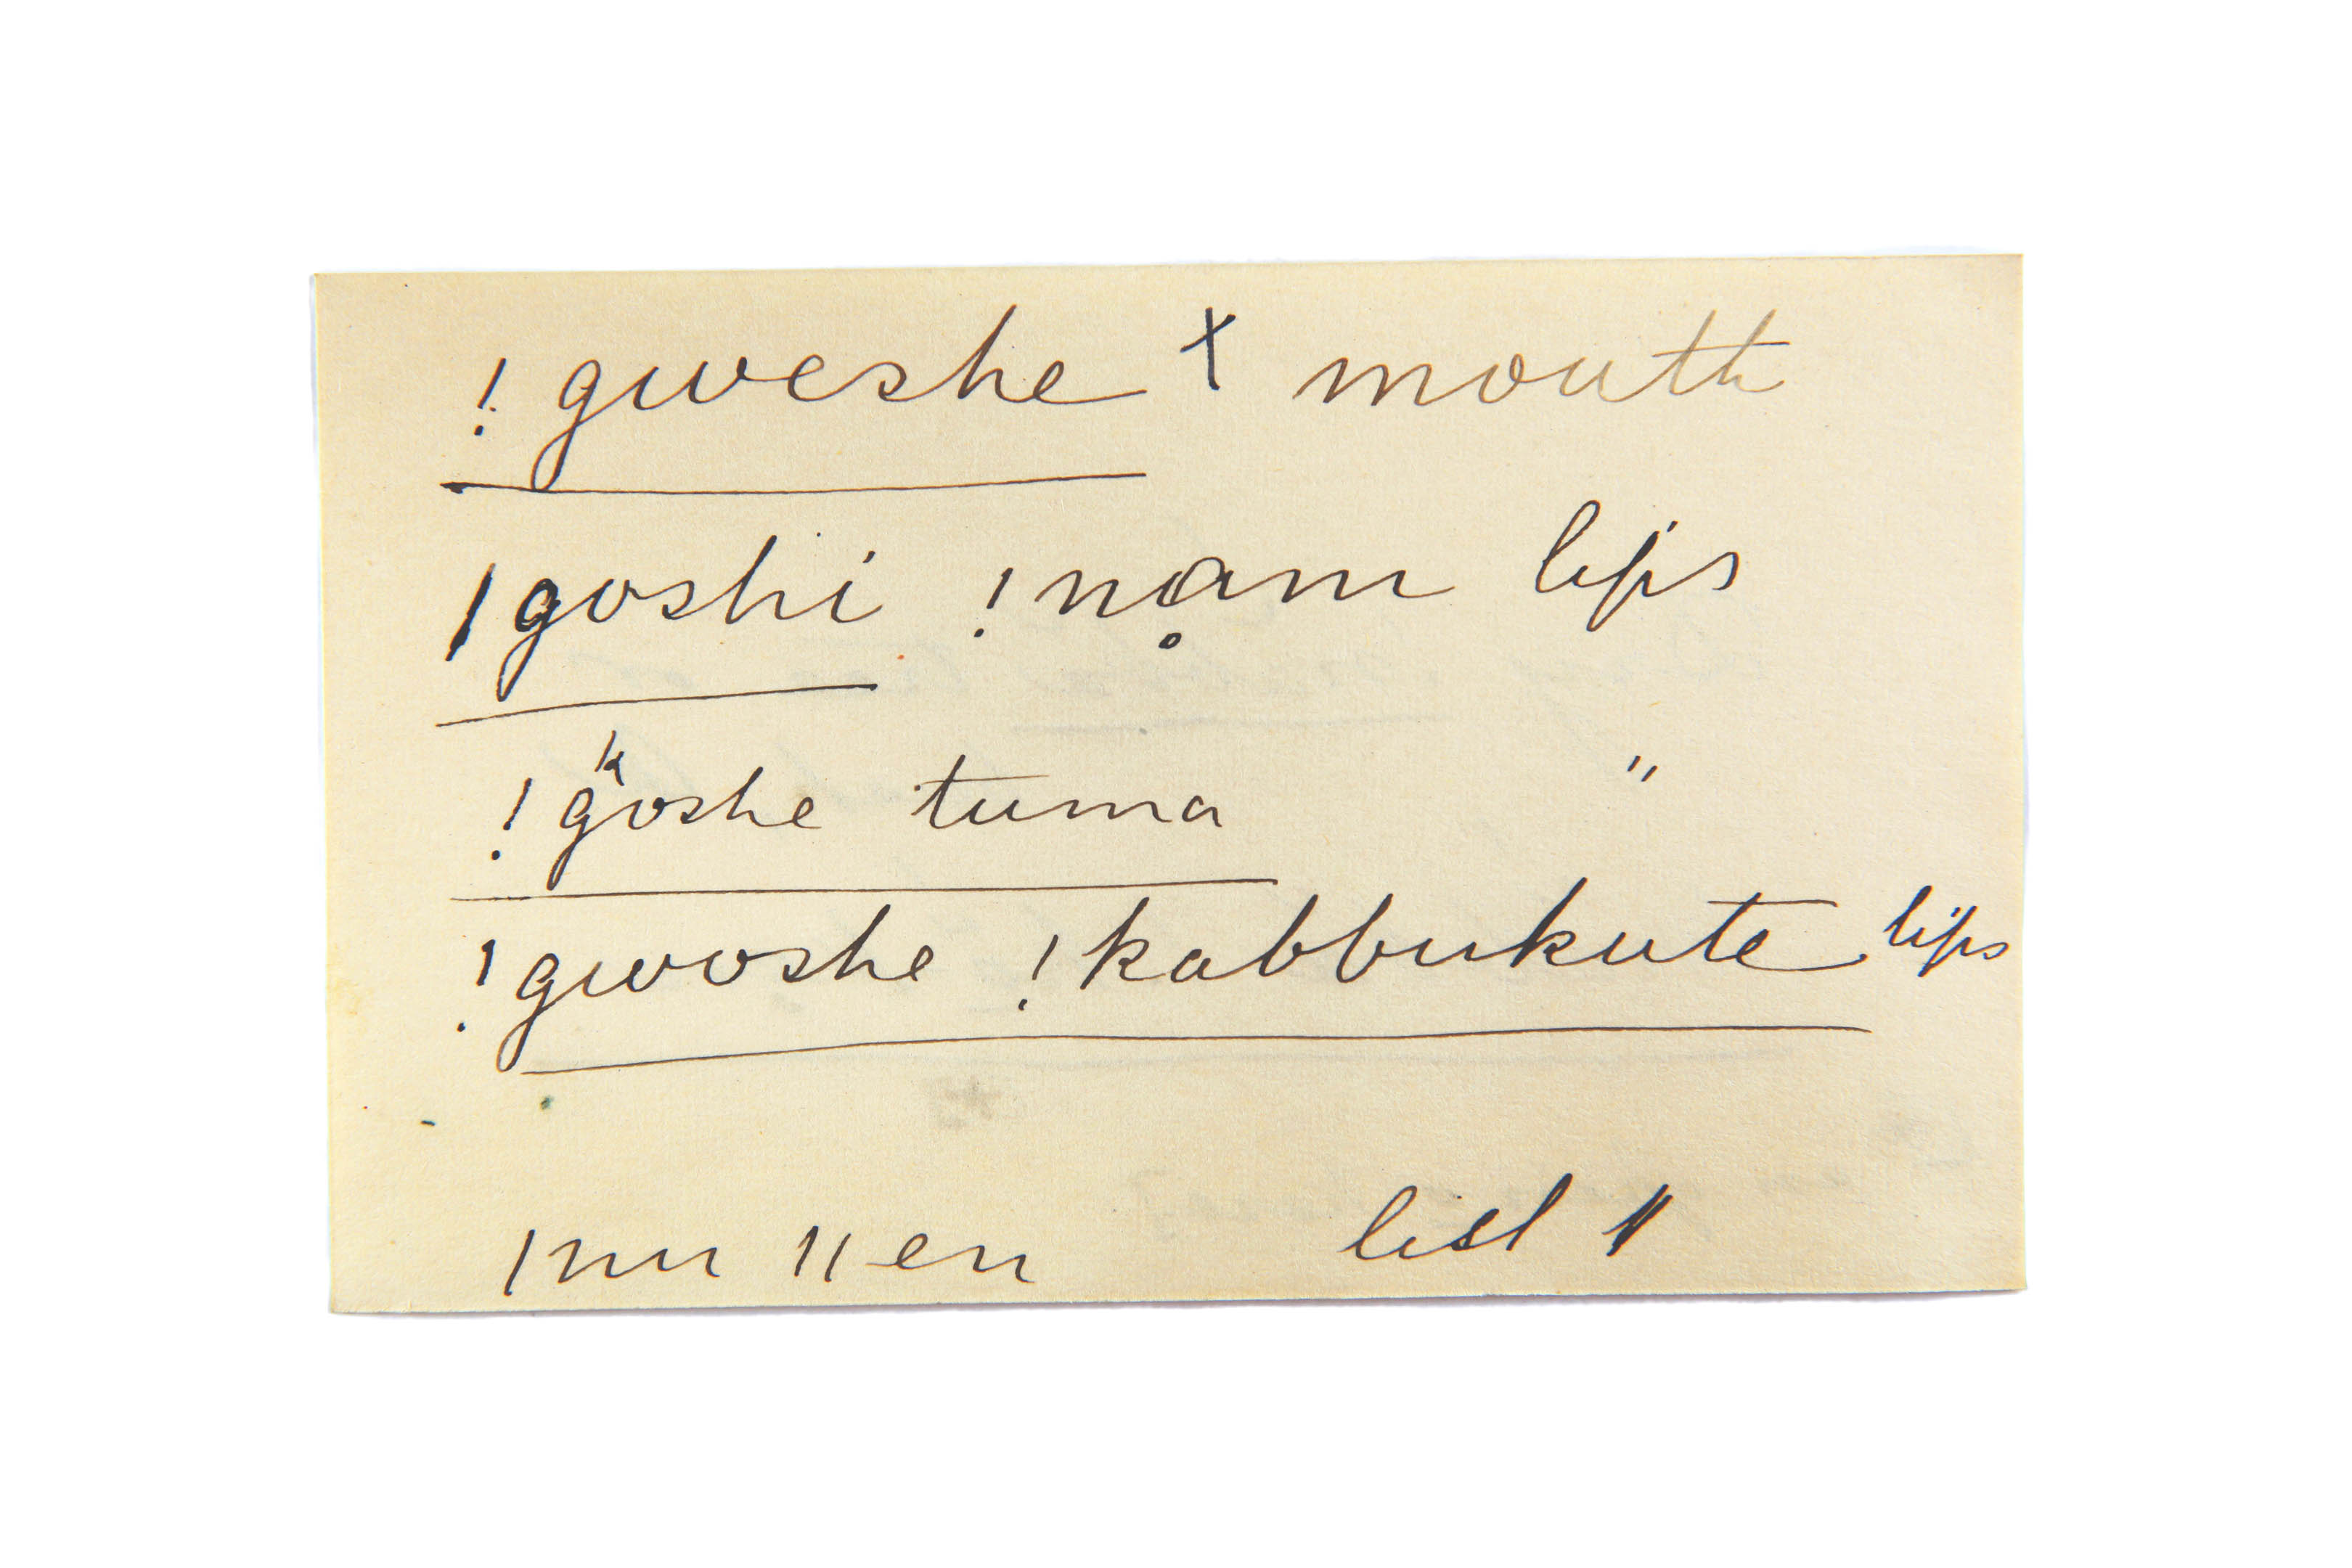 ! gweshe x mouth
| goshi ! nạm lips
! gᵏoshe tuma "
! gwoshe ! kabbukute lips
| nu || en list 1